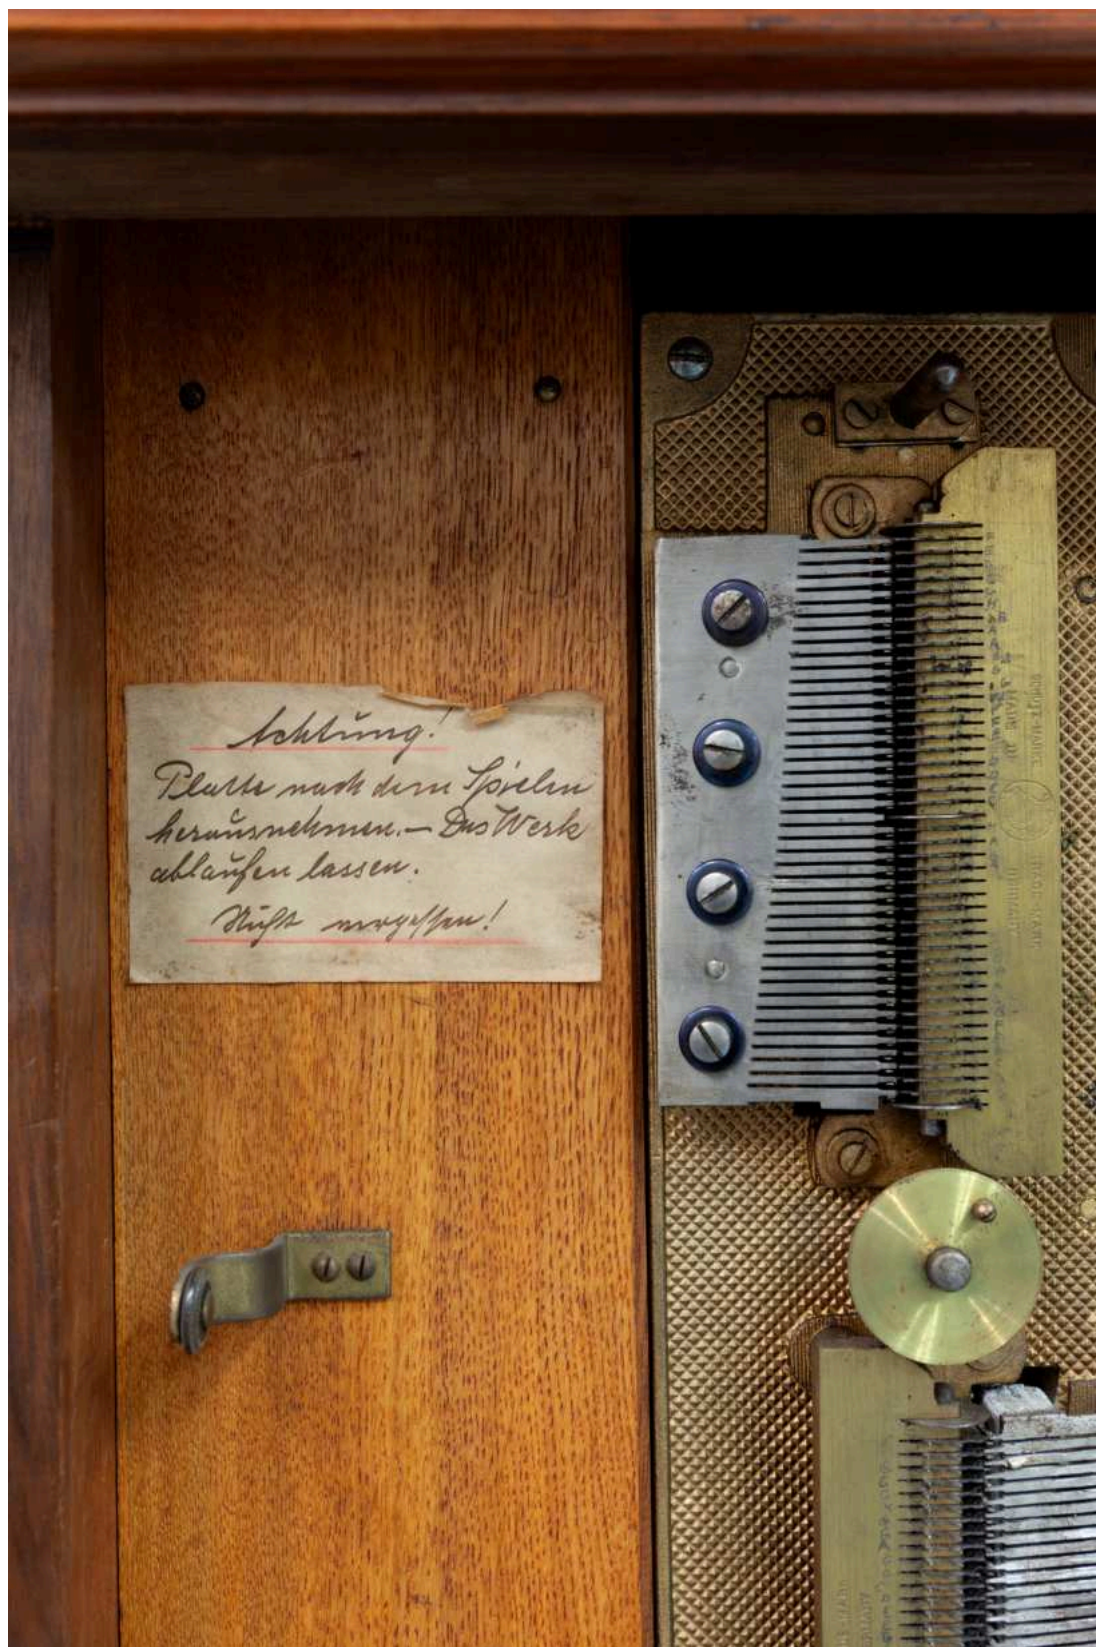 Achtung!
Platte nach dem Spielen
herausnehmen. — Das Werk
ablaufen lassen.
Nicht vergessen!
SCHUTZ-MARKE
MADE IN
TRADE MARK